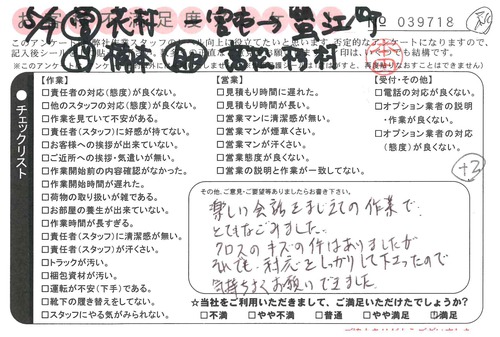 № 039718
チェックリスト
【作業】
□責任者(態度)が良くない。
□他のスタッフの対応(態度)が良くない。
□作業を見ていて不安がある。
□責任者(スタッフ)に好感が持てない。
□お客様への挨拶が出来ていない。
□ご近所への挨拶・気遣いが無い。
□作業開始前の内容確認がなかった。
□作業開始時間が遅れた。
□荷物の取り扱いが雑である。
□お部屋の養生が出来ていない。
□作業時間が長すぎる。
□責任者(スタッフ)に清潔感が無い。
□責任者(スタッフ)が汗くさい。
□トラックが汚い。
□梱包資材が汚い。
□運転が不安(下手)である。
□靴下の履き替えをしてない。
□スタッフにやる気がみられない。
【営業】
□見積もり時間に遅れた。
□見積もり時間が長い。
□営業マンに清潔感が無い。
□営業マンが煙草くさい。
□営業マンが汗くさい。
□営業態度が良くない。
□営業の説明と作業が一致してない。
【受付・その他】
□電話の対応が良くない。
□オプション業者の説明
・作業が良くない。
□オプション業者の対応
(態度)が良くない。
+3
その他、ご意見・ご要望等ありましたらお書き下さい。
楽しい会話をまじえての作業で、
とてもなごみました。
クロスのキズの件はありましたが
それでも、対応をしっかりして下さったので
気持ちよくお願いできました。
☆当社をご利用いただきまして、ご満足いただけたでしょうか?
□不満 □やや不満 □普通 □やや満足 □満足